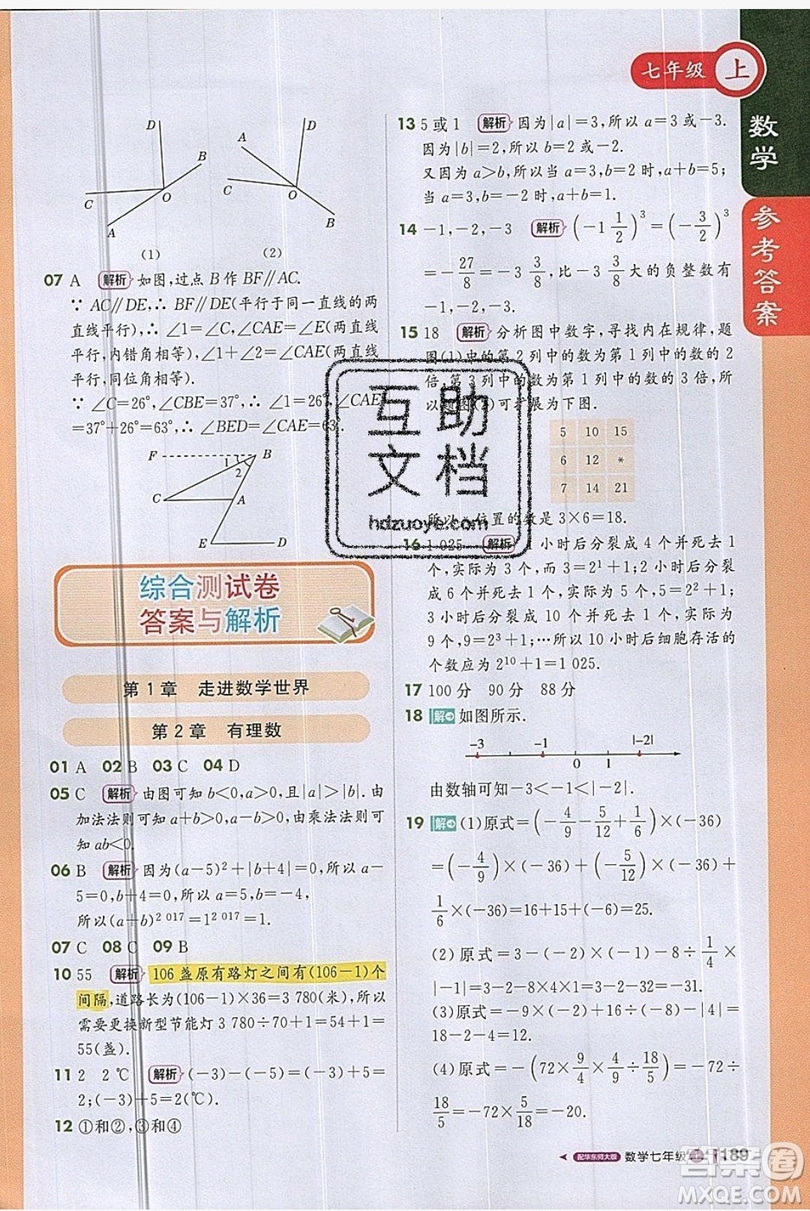 七年级 上
数学
参考答案
D
B
C
O
A
(1)
D
A
C
O
B
(2)
07 A 解析 如图,过点 B 作 BF∥AC.
∵ AC∥DE,∴ BF∥DE(平行于同一直线的两
直线平行),∴ ∠1=∠C,∠CAE=∠E(两直线
平行,内错角相等),∴ ∠BED=∠CAE(两直线
平行,同位角相等).
∵ ∠C=26°,∠CBE=37°,∴ ∠1=26°,∠CAE
=37°+26°=63°,∴ ∠BED=∠CAE=63°.
F
B
1
2
C
A
E
D
综合测试卷
答案与解析
第 1 章 走进数学世界
第 2 章 有理数
01 A 02 B 03 C 04 D
05 C 解析 由图可知 b<0,a>0,且|a|>|b|.由
加法法则可知 a+b>0,a-b>0,由乘法法则可
知 ab<0.
06 B 解析 因为(a-5)²+|b+4|=0,所以 a-
5=0,b+4=0,所以 a=5,b=-4,
所以(a+b)²⁰¹⁷=1²⁰¹⁷=1.
07 C 08 C 09 B
10 55 解析 106 盏原有路灯之间有(106-1)个
间隔,道路长为(106-1)×36=3 780(米),所以
需要更换新型节能灯 3 780÷70+1=54+1=
55(盏).
11 2 2 ℃ 解析 (-3)-(-5)=(-3)+5=
2;(-3)+5=2(℃).
12 ①和②,③和④
13 5 或 1 解析 因为|a|=3,所以 a=3 或-3.
因为|b|=2,所以 b=2 或-2.
又因为 a>b,所以当 a=3,b=2 时,a+b=5;
当 a=3,b=-2 时,a+b=1.
14 -1,-2,-3 解析 (-1 1/2)³=(-3/2)³
=-27/8=-3 3/8,比-3 3/8大的负整数有
-1,-2,-3.
15 18 解析 分析图中数字,寻找内在规律,题
图(1)中的第 2 列中的数为第 1 列中的数的 2
倍,第 3 列中的数为第 1 列中的数的 3 倍,所
以 可扩展为下图.
5 10 15
6 12 *
7 14 21
所以 * 位置的数是 3×6=18.
16 1 025 解析 1 小时后分裂成 4 个并死去 1
个,实际为 3 个,而 3=2¹+1;2 小时后分裂成
6 个并死去 1 个,实际为 5 个,5=2²+1;
3 小时后分裂成 10 个并死去 1 个,实际为
9 个,9=2³+1;…所以 10 小时后细胞存活的
个数应为 2¹⁰+1=1 025.
17 100 分 90 分 88 分
18 解 如图所示.
-3 -1 0 1 |-2|
由数轴可知-3<-1<|-2|.
19 解 (1)原式=(-4/9-5/12+1/6)×(-36)
=(-4/9)×(-36)+(-5/12)×(-36)+
1/6×(-36)=16+15+(-6)=25.
(2)原式=3-(-2)×(-1)-8÷(-1/2)⁴
×|-4|
(3)原式=-9×(-2)+16÷(-8)-|4|=
18-2-4=12.
(4)原式=-(72×9/4×4/9÷18/5)=-72÷
18/5=-72×5/18=-20.
配华东师大版 数学七年级 上 189
互助
文档
hdzuoye.com
答案圈
MXQE.COM